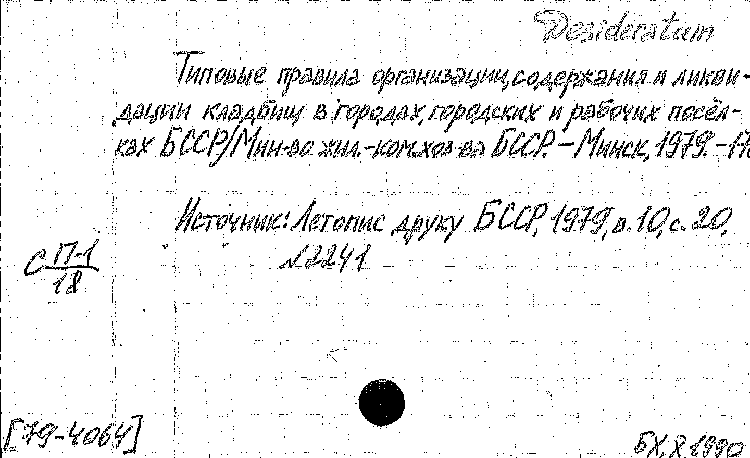 Desideratum
Типовые правила организации, содержания и ликви-
дации кладбищ в городах, городских и рабочих посёл-
ках БССР/Мин-во жил.-ком.хоз-ва БССР. – Минск, 1979. – 17с
Источник: Летопис друку БССР, 1979, в. 10, с. 20,
№2241
с П-1
18
[79-4064]
БХ, X.1990